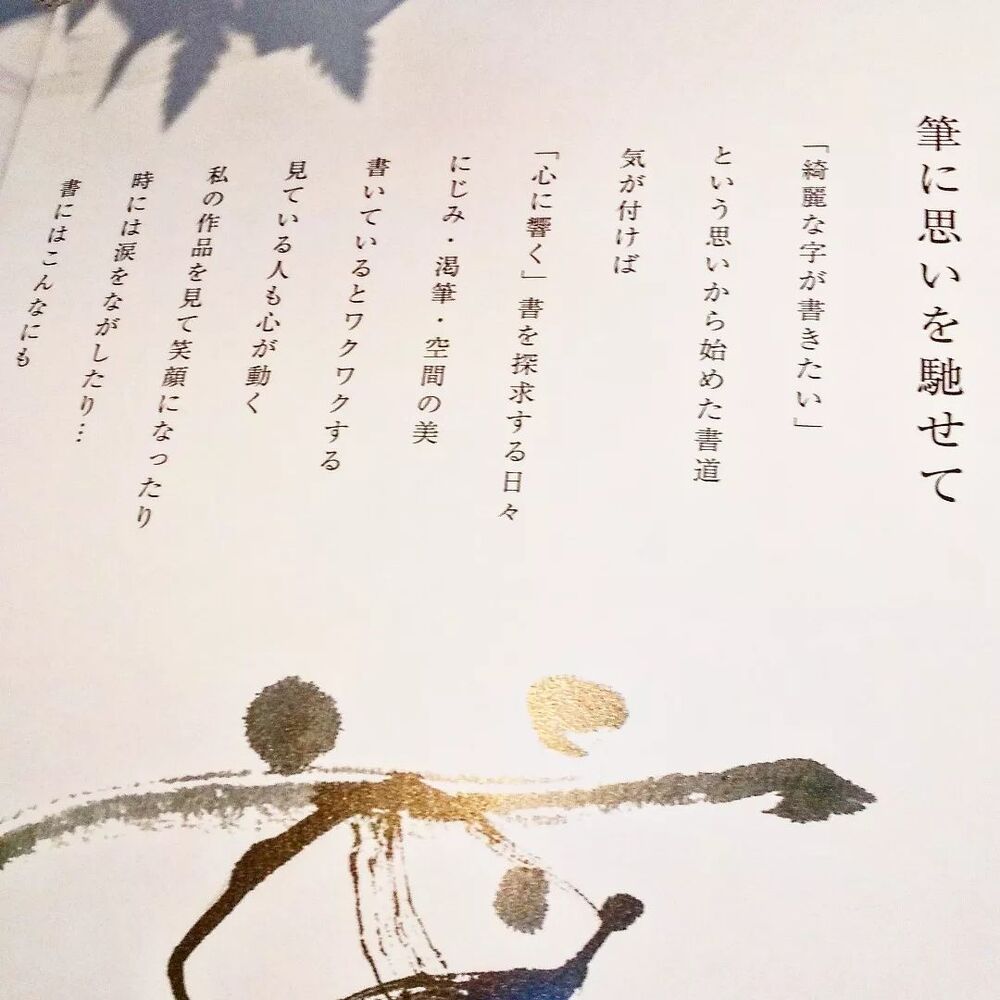 筆に思いを馳せて
「綺麗な字が書きたい」
という思いから始めた書道
気が付けば
「心に響く」書を探求する日々
にじみ・渇筆・空間の美
書いているとワクワクする
見ている人も心が動く
私の作品を見て笑顔になったり
時には涙をながしたり…
書にはこんなにも